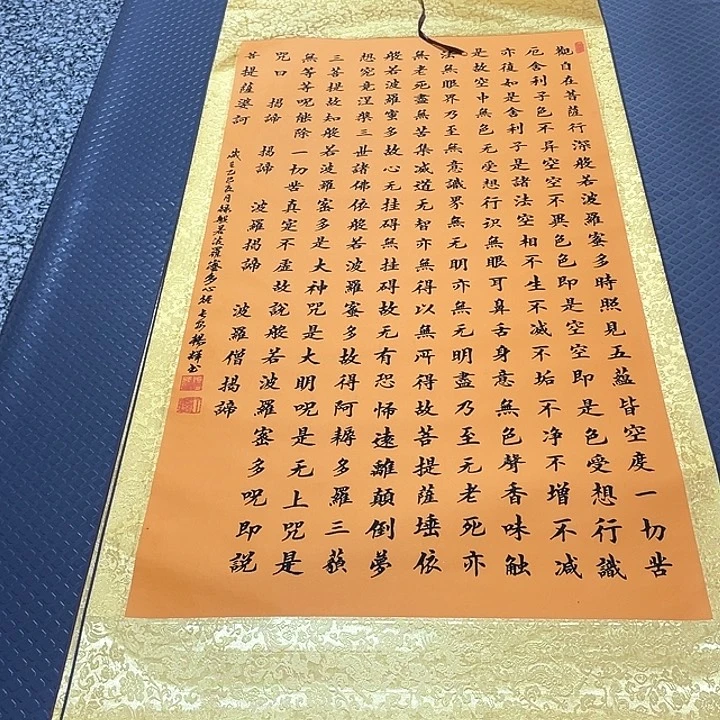 觀自在菩薩行深般若波羅蜜多時照見五蘊皆空度一切苦
厄舍利子色不异空空不異色色即是空空即是色受想行識
亦復如是舍利子是諸法空相不生不滅不垢不净不增不减
是故空中無色无受想行识無眼耳鼻舌身意無色聲香味触
法無眼界乃至無意識界無无明亦無无明盡乃至无老死亦
無老死盡無苦集滅道无智亦無得以無所得故菩提薩埵依
般若波羅蜜多故心无挂碍無挂碍故无有恐怖遠離顛倒夢
想究竟涅槃三世諸佛依般若波羅蜜多故得阿耨多羅三藐
三菩提故知般若波羅蜜多是大神咒是大明呪是无上咒是
無等等呪能除一切苦真实不虚故說般若波羅蜜多呪即說
咒曰 揭諦 揭諦 波羅揭諦 波羅僧揭諦
菩提薩婆訶
乙巳 月録般若波羅蜜多心經 楊輝书